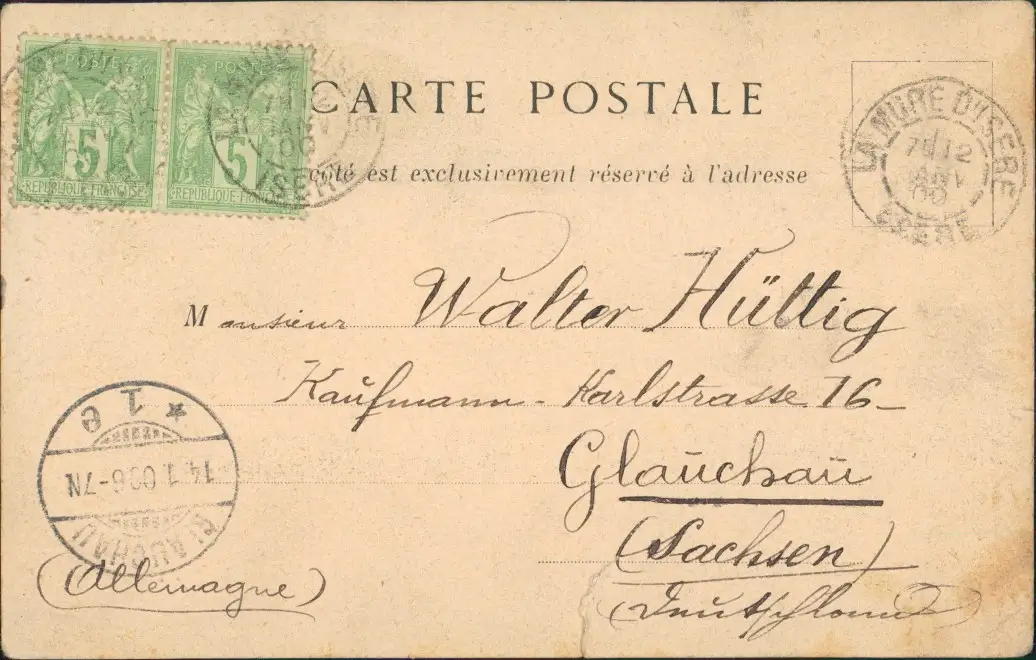 POSTE POSTE
5 5
REPUBLIQUE FRANÇAISE REPUBLIQUE FRANÇAISE
ISERE
CARTE POSTALE
côté est exclusivement réservé à l'adresse
LA MURE D'ISERE
12
JANV
00
ISERE
Monsieur Walter Hüttig
Kaufmann - Karlstrasse 16-
Glauchau
(Sachsen)
(Deutschland)
* 1 e
14.1.00 6-7N
GLAUCHAU
(Allemagne)